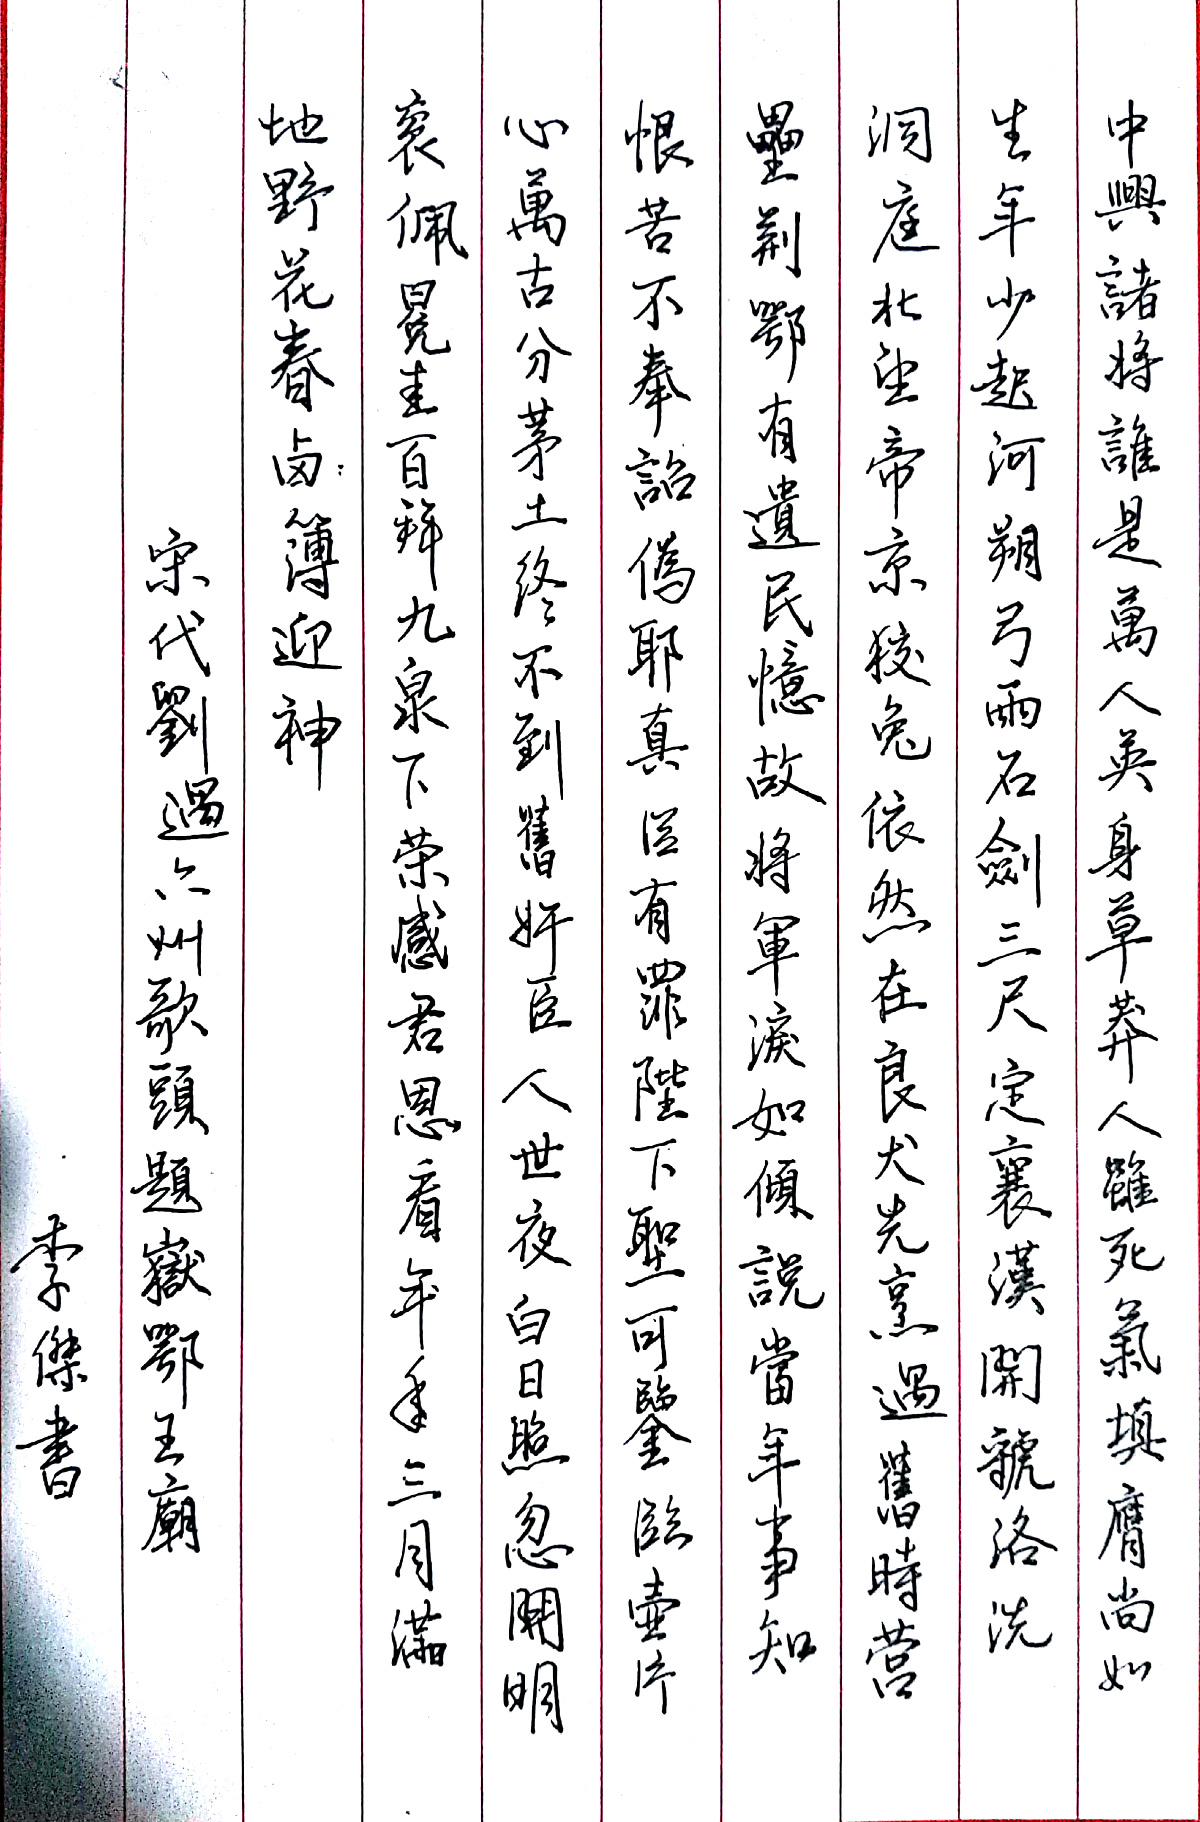 中興諸將誰是萬人英身草莽人雖死氣填膺尚如
生年少起河朔弓兩石劍三尺定襄漢開虢洛洗
洞庭北望帝京狡兔依然在良犬先烹過舊時营
壘荆鄂有遺民憶故將軍淚如傾說當年事知
恨苦不奉詔偽耶真臣有罪陛下聖可鑒臨壹片
心萬古分茅土終不到舊奸臣人世夜白日照忽開明
衮佩冕圭百拜九泉下荣感君恩看年年三月滿
地野花春卤簿迎神
宋代劉過六州歌頭題嶽鄂王廟
李傑書